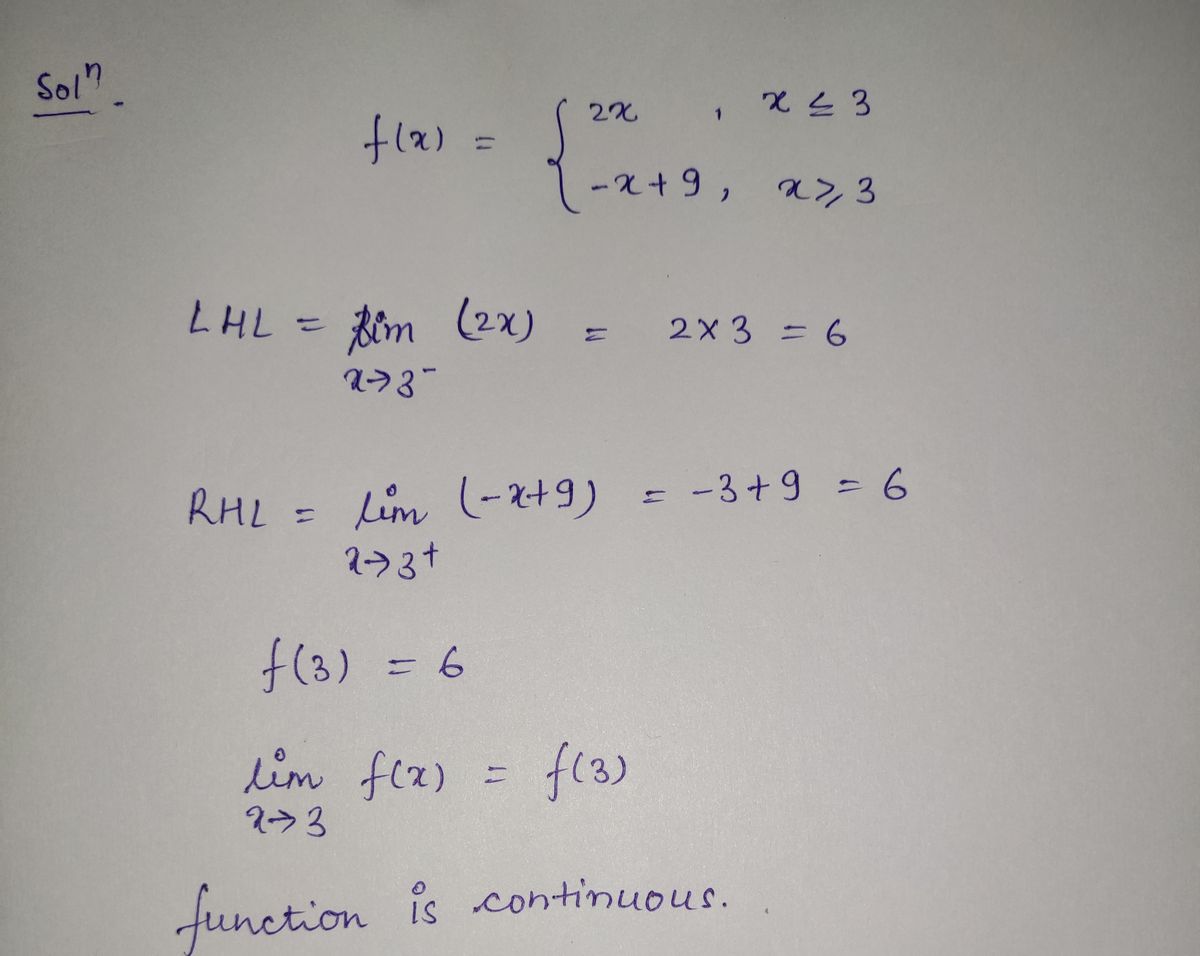 Solⁿ.
f(x) = { 2x , x ≤ 3
-x+9 , x ⩾ 3
LHL = lim (2x) = 2×3 = 6
x→3⁻
RHL = lim (-x+9) = -3+9 = 6
x→3+
f(3) = 6
lim f(x) = f(3)
x→3
function is continuous.